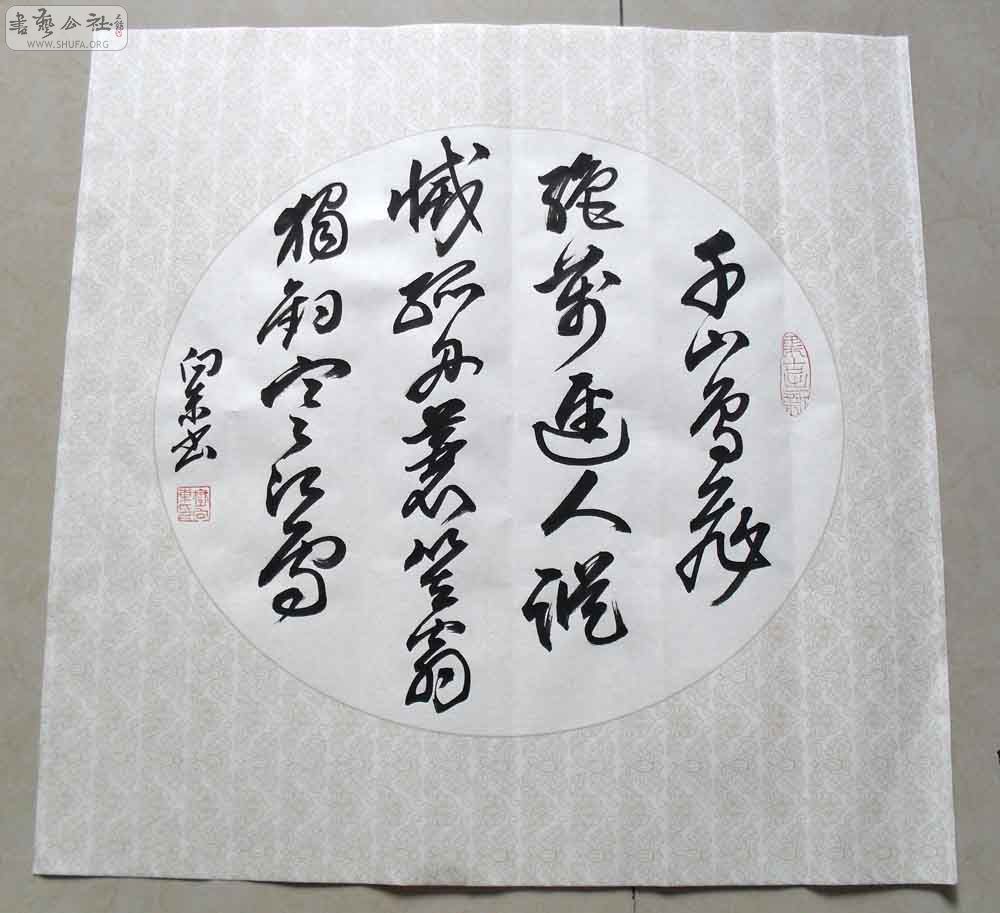 書藝公社
WWW.SHUFA.ORG
千山鳥飛
絕萬逕人蹤
滅孤舟蓑笠翁
獨釣寒江雪
向東書